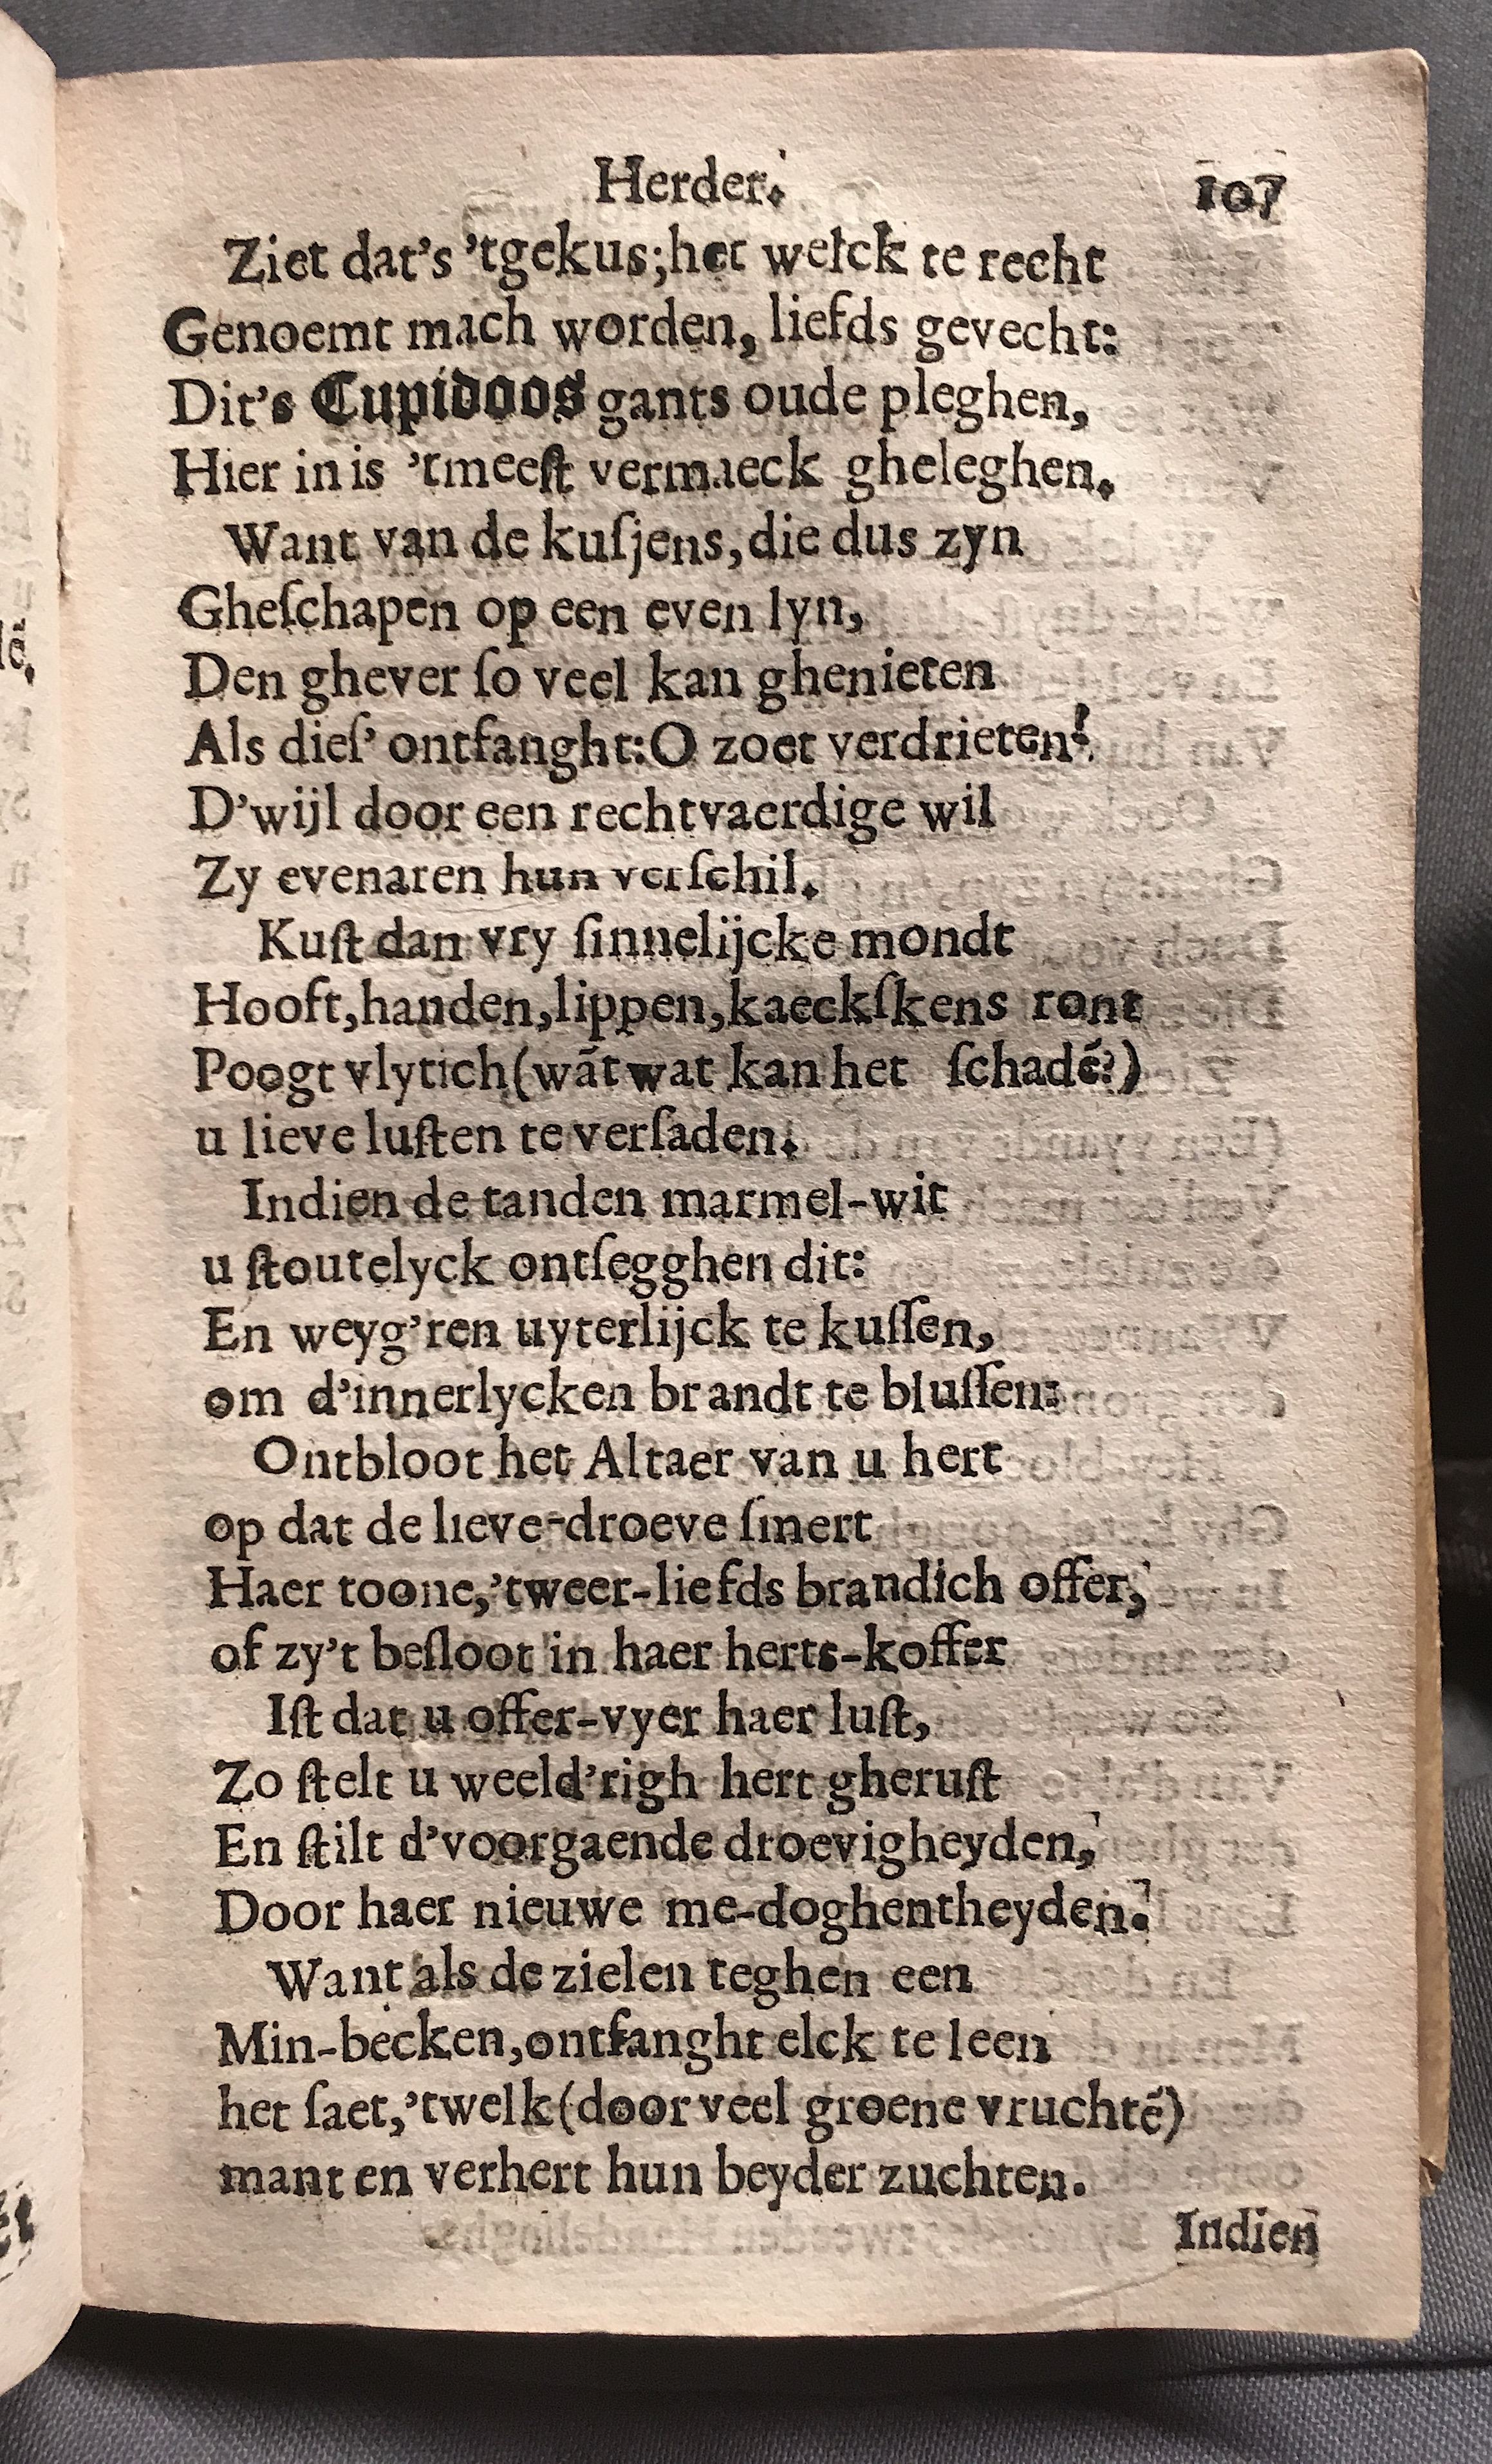 Herder. 107
Ziet dat's 'tgekus; het welck te recht
Genoemt mach worden, liefds gevecht:
Dit's Cupidoos gants oude pleghen,
Hier in is 'tmeeſt vermaeck gheleghen.
Want van de kuſjens, die dus zyn
Gheſchapen op een even lyn,
Den ghever ſo veel kan ghenieten
Als dieſ' ontfanght: O zoet verdrieten!
D'wijl door een rechtvaerdige wil
Zy evenaren hun verſchil.
Kuſt dan vry ſinnelijcke mondt
Hooft, handen, lippen, kaeckſkens ront
Poogt vlytich (wāt wat kan het ſchadē?)
u lieve luſten te verſaden.
Indien de tanden marmel-wit
u ſtoutelyck ontſegghen dit:
En weyg'ren uyterlijck te kuſſen,
om d'innerlycken brandt te bluſſen:
Ontbloot het Altaer van u hert
op dat de lieve-droeve ſmert
Haer toone, 'tweer-liefds brandich offer,
of zy't beſloot in haer herts-koffer
Iſt dat u offer-vyer haer luſt,
Zo ſtelt u weeld'righ hert gheruſt
En ſtilt d'voorgaende droevigheyden,
Door haer nieuwe me-doghentheyden.
Want als de zielen teghen een
Min-becken, ontfanght elck te leen
het ſaet, 'twelk (door veel groene vruchtē)
mant en verhert hun beyder zuchten.
Indien